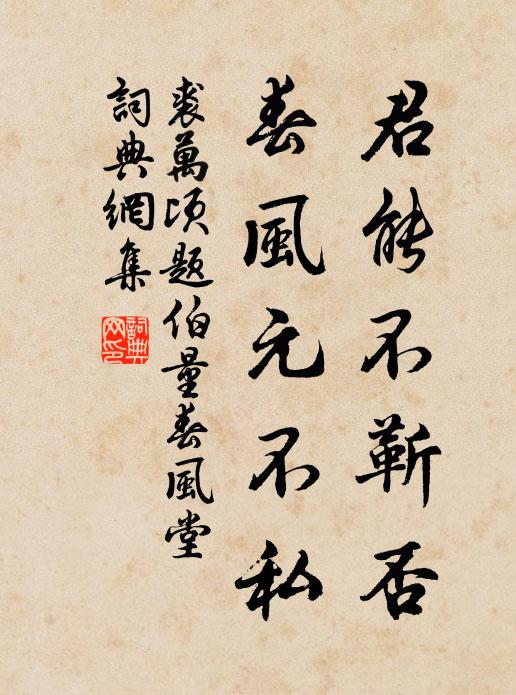 君能不靳否
春風元不私
裘萬頃題伯量春風堂
詞典網集
詞典網印